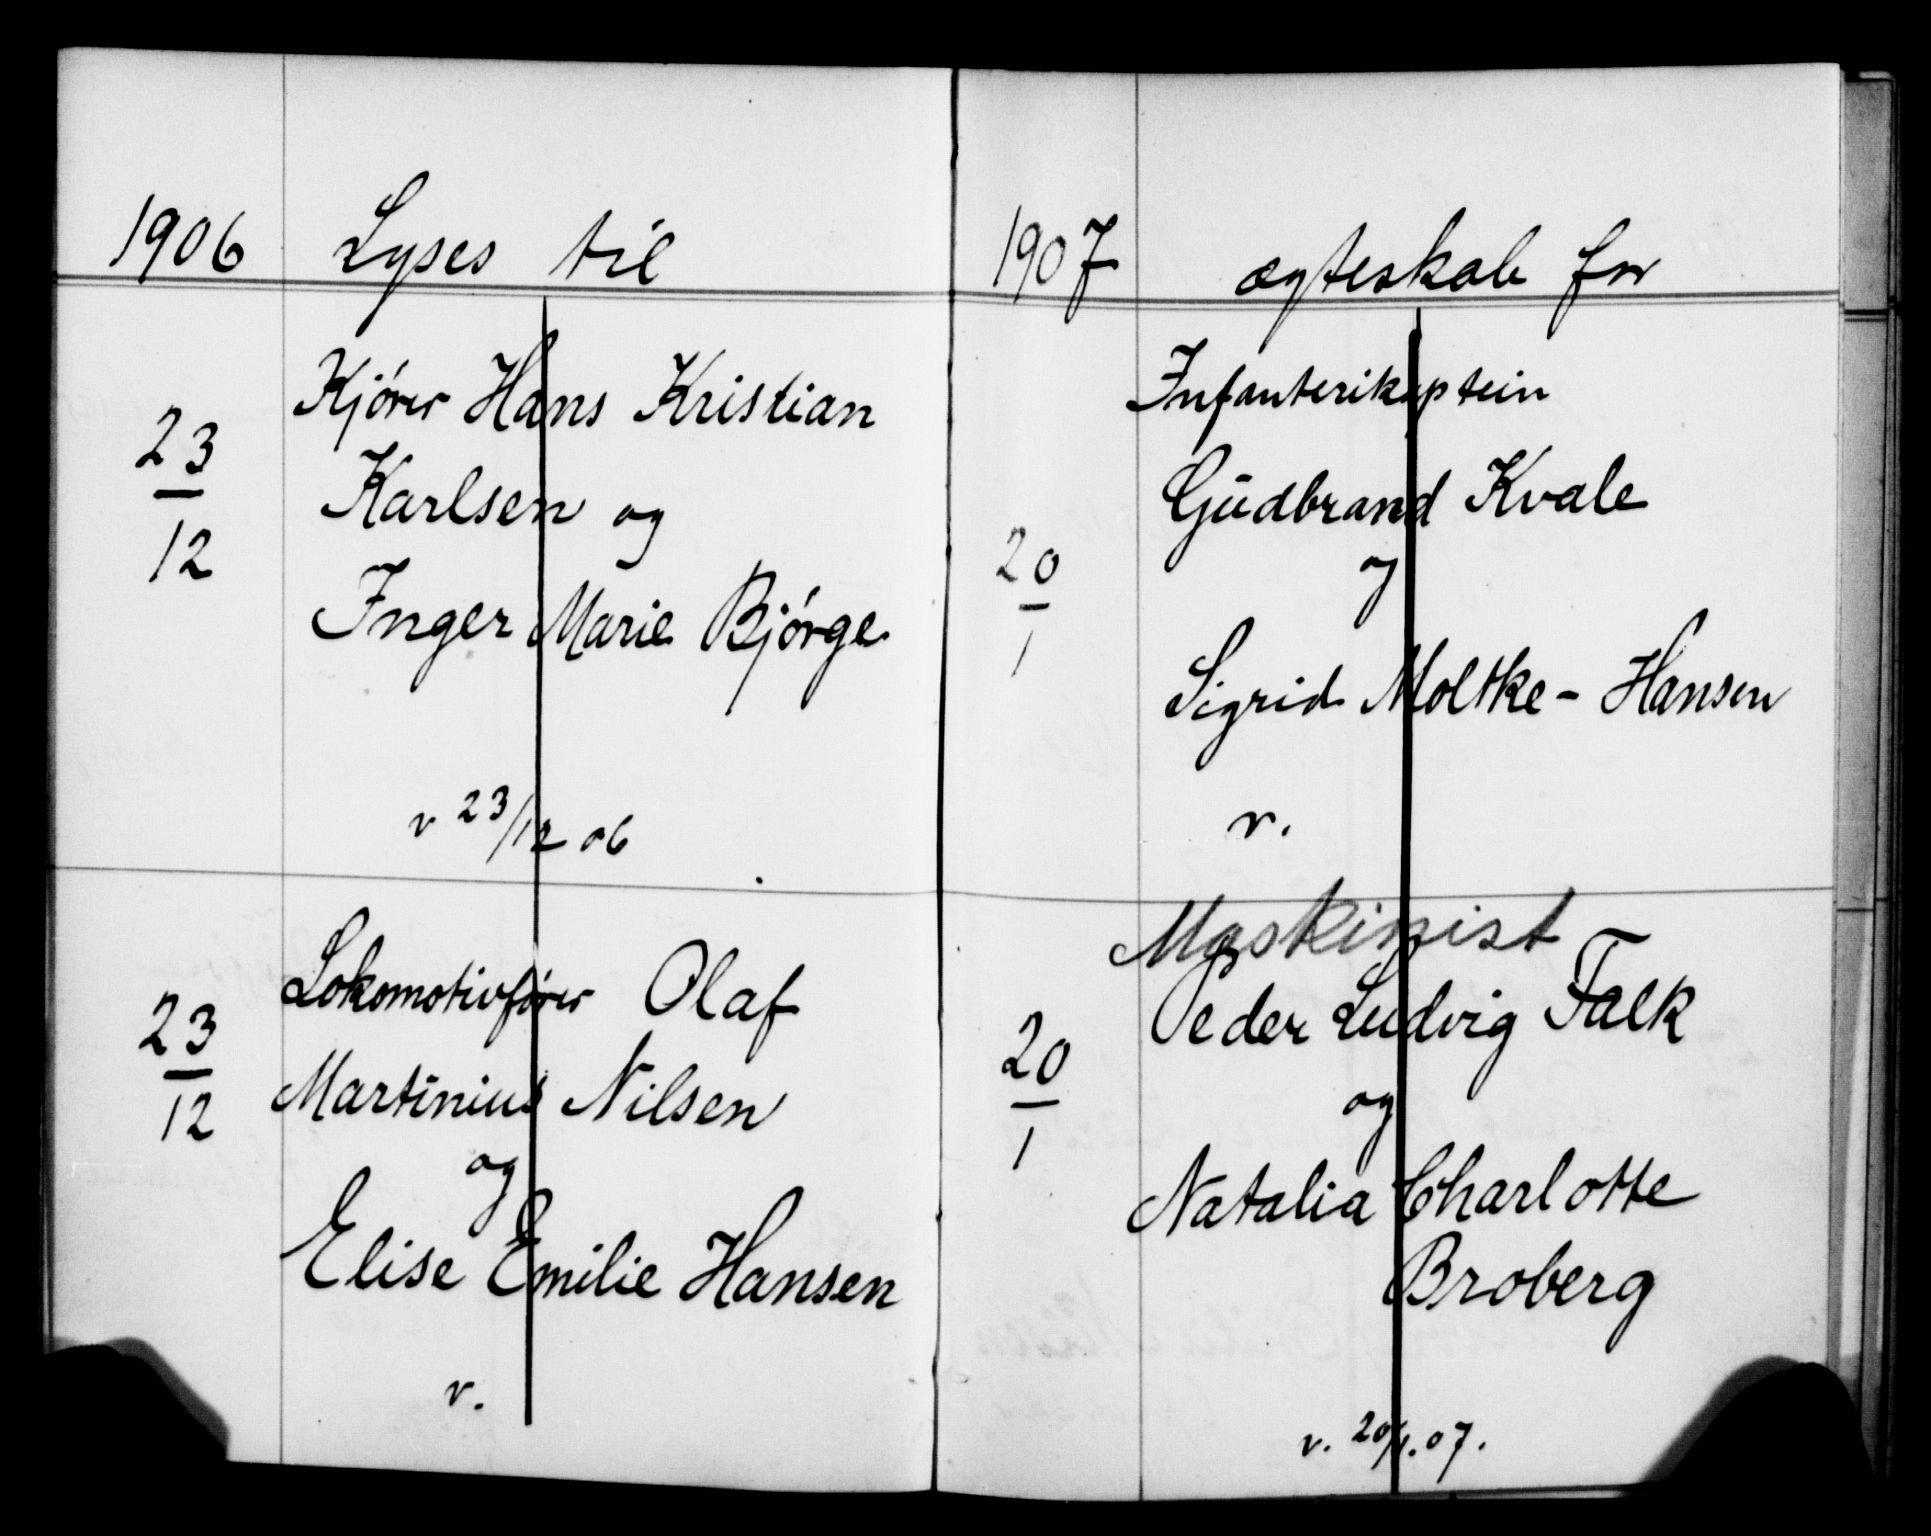 1906 Lyses til
Kjórer Hans Kristian
23
Karlsen og
12
Inger Marie Bjórge
v 23/12 06
Lokomotivfører Olaf
23
Martinius Nilsen
12
og
Elise Emilie Hansen
v.
1907 ægteskab for
Infanterikaptein
Gudbrand Kvale
20
og
1
Sigrid Moltke - Hansen
v.
Maskinist
Peder Ludvig Falk
20
og
1
Natalia Charlotte
Broberg
v. 20/1.07.